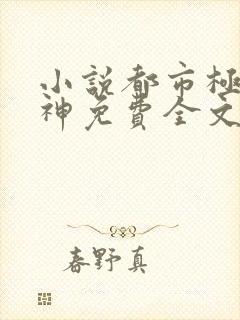 小説都市極
神免費全文
春野真